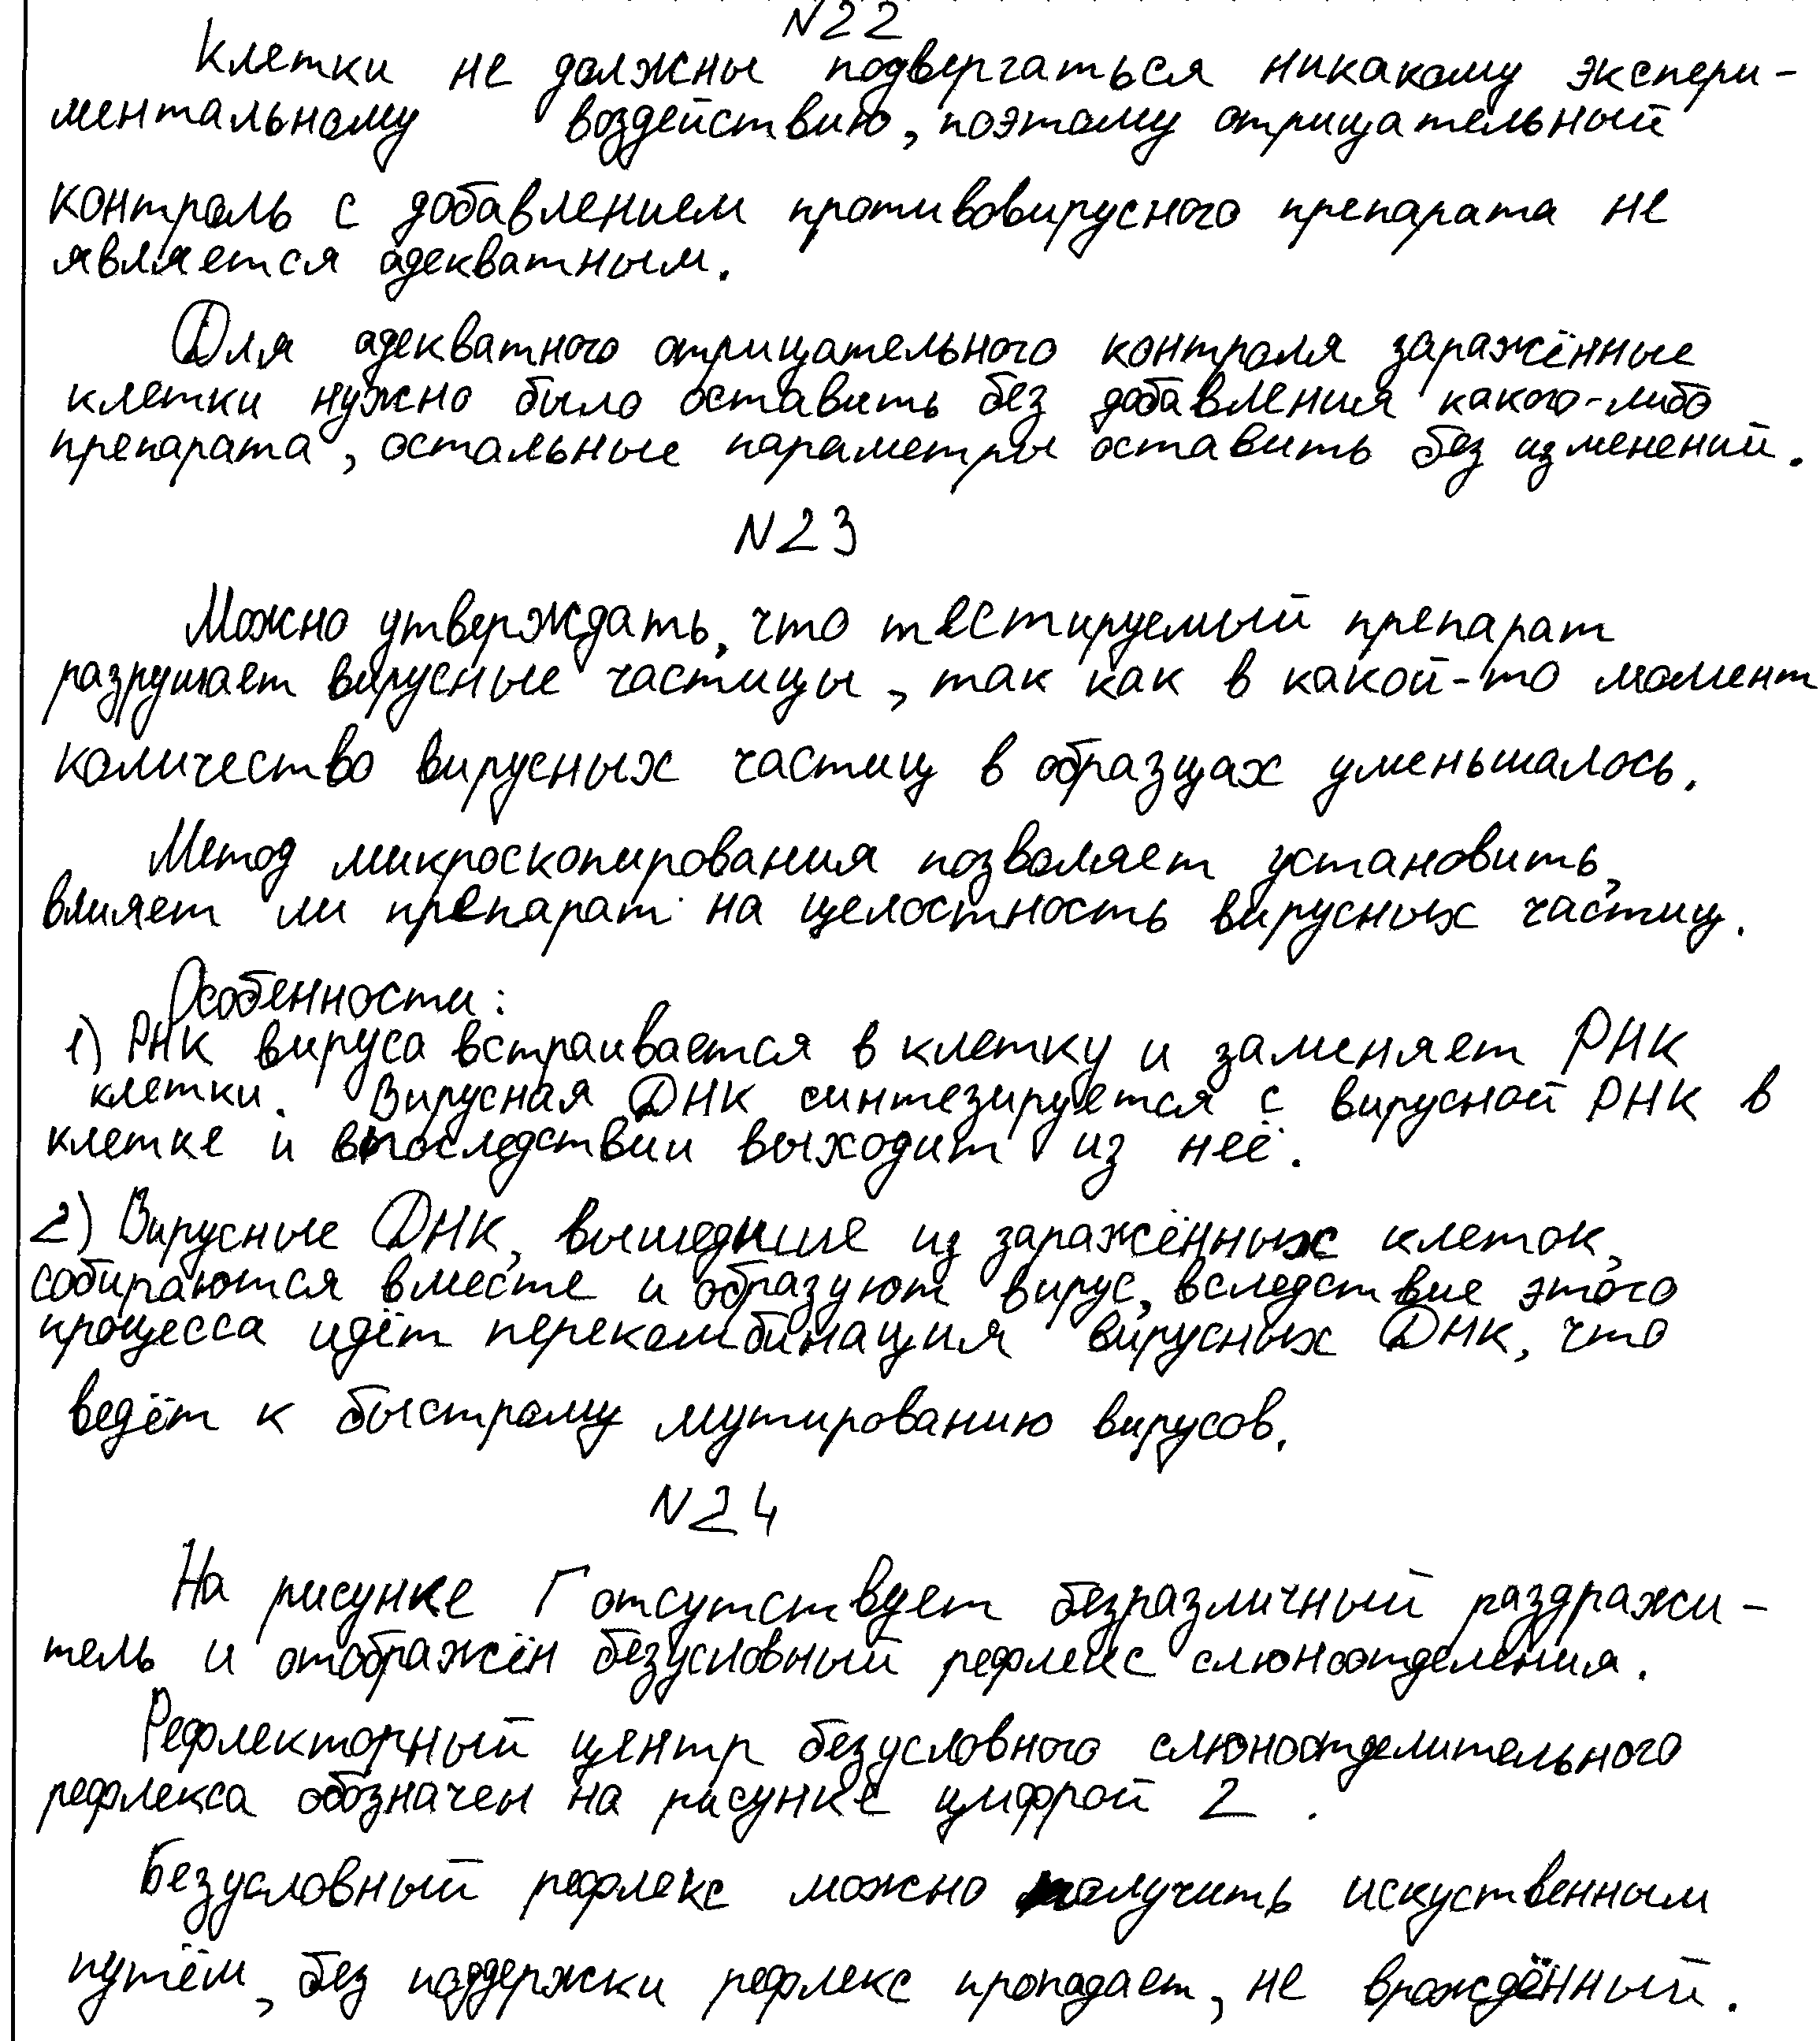 N22
Клетки не должны подвергаться никакому экспери-
ментальному воздействию, поэтому отрицательный
контроль с добавлением противовирусного препарата не
является адекватным.
Для адекватного отрицательного контроля заражённые
клетки нужно было оставить без добавления какого-либо
препарата, остальные параметры оставить без изменений.
N23
Можно утверждать, что тестируемый препарат
разрушает вирусные частицы, так как в какой-то момент
количество вирусных частиц в образцах уменьшалось.
Метод микроскопирования позволяет установить,
влияет ли препарат на целостность вирусных частиц.
Особенности:
1) РНК вируса встраивается в клетку и заменяет РНК
клетки. Вирусная ДНК синтезируется с вирусной РНК в
клетке и впоследствии выходит из неё.
2) Вирусные ДНК, вышедшие из заражённых клеток,
собираются вместе и образуют вирус, вследствие этого
процесса идёт перекомбинация вирусных ДНК, что
ведёт к быстрому мутированию вирусов.
N24
На рисунке Г отсутствует безразличный раздражи-
тель и отображён безусловный рефлекс слюноотделения.
Рефлекторный центр безусловного слюноотделительного
рефлекса обозначен на рисунке цифрой 2.
Безусловный рефлекс можно получить искуственным
путём, без поддержки рефлекс пропадает, не врождённый.